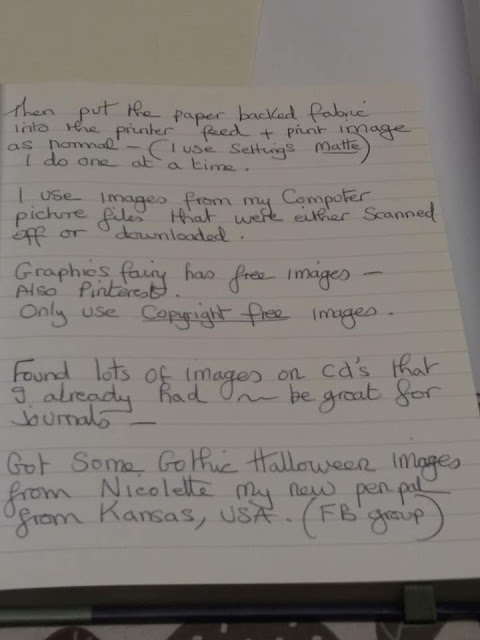 Then put the paper backed fabric
into the printer feed + print image
as normal - (I use settings matte)
I do one at a time.
I use images from my Computer
picture files that were either Scanned
off or downloaded.
Graphics fairy has free images -
Also Pinterest.
Only use Copyright free images.
Found lots of images on cd's that
I already had ~ be great for
Journals -
Got Some Gothic Halloween images
from Nicolette my new penpal
from Kansas, USA. (FB group)